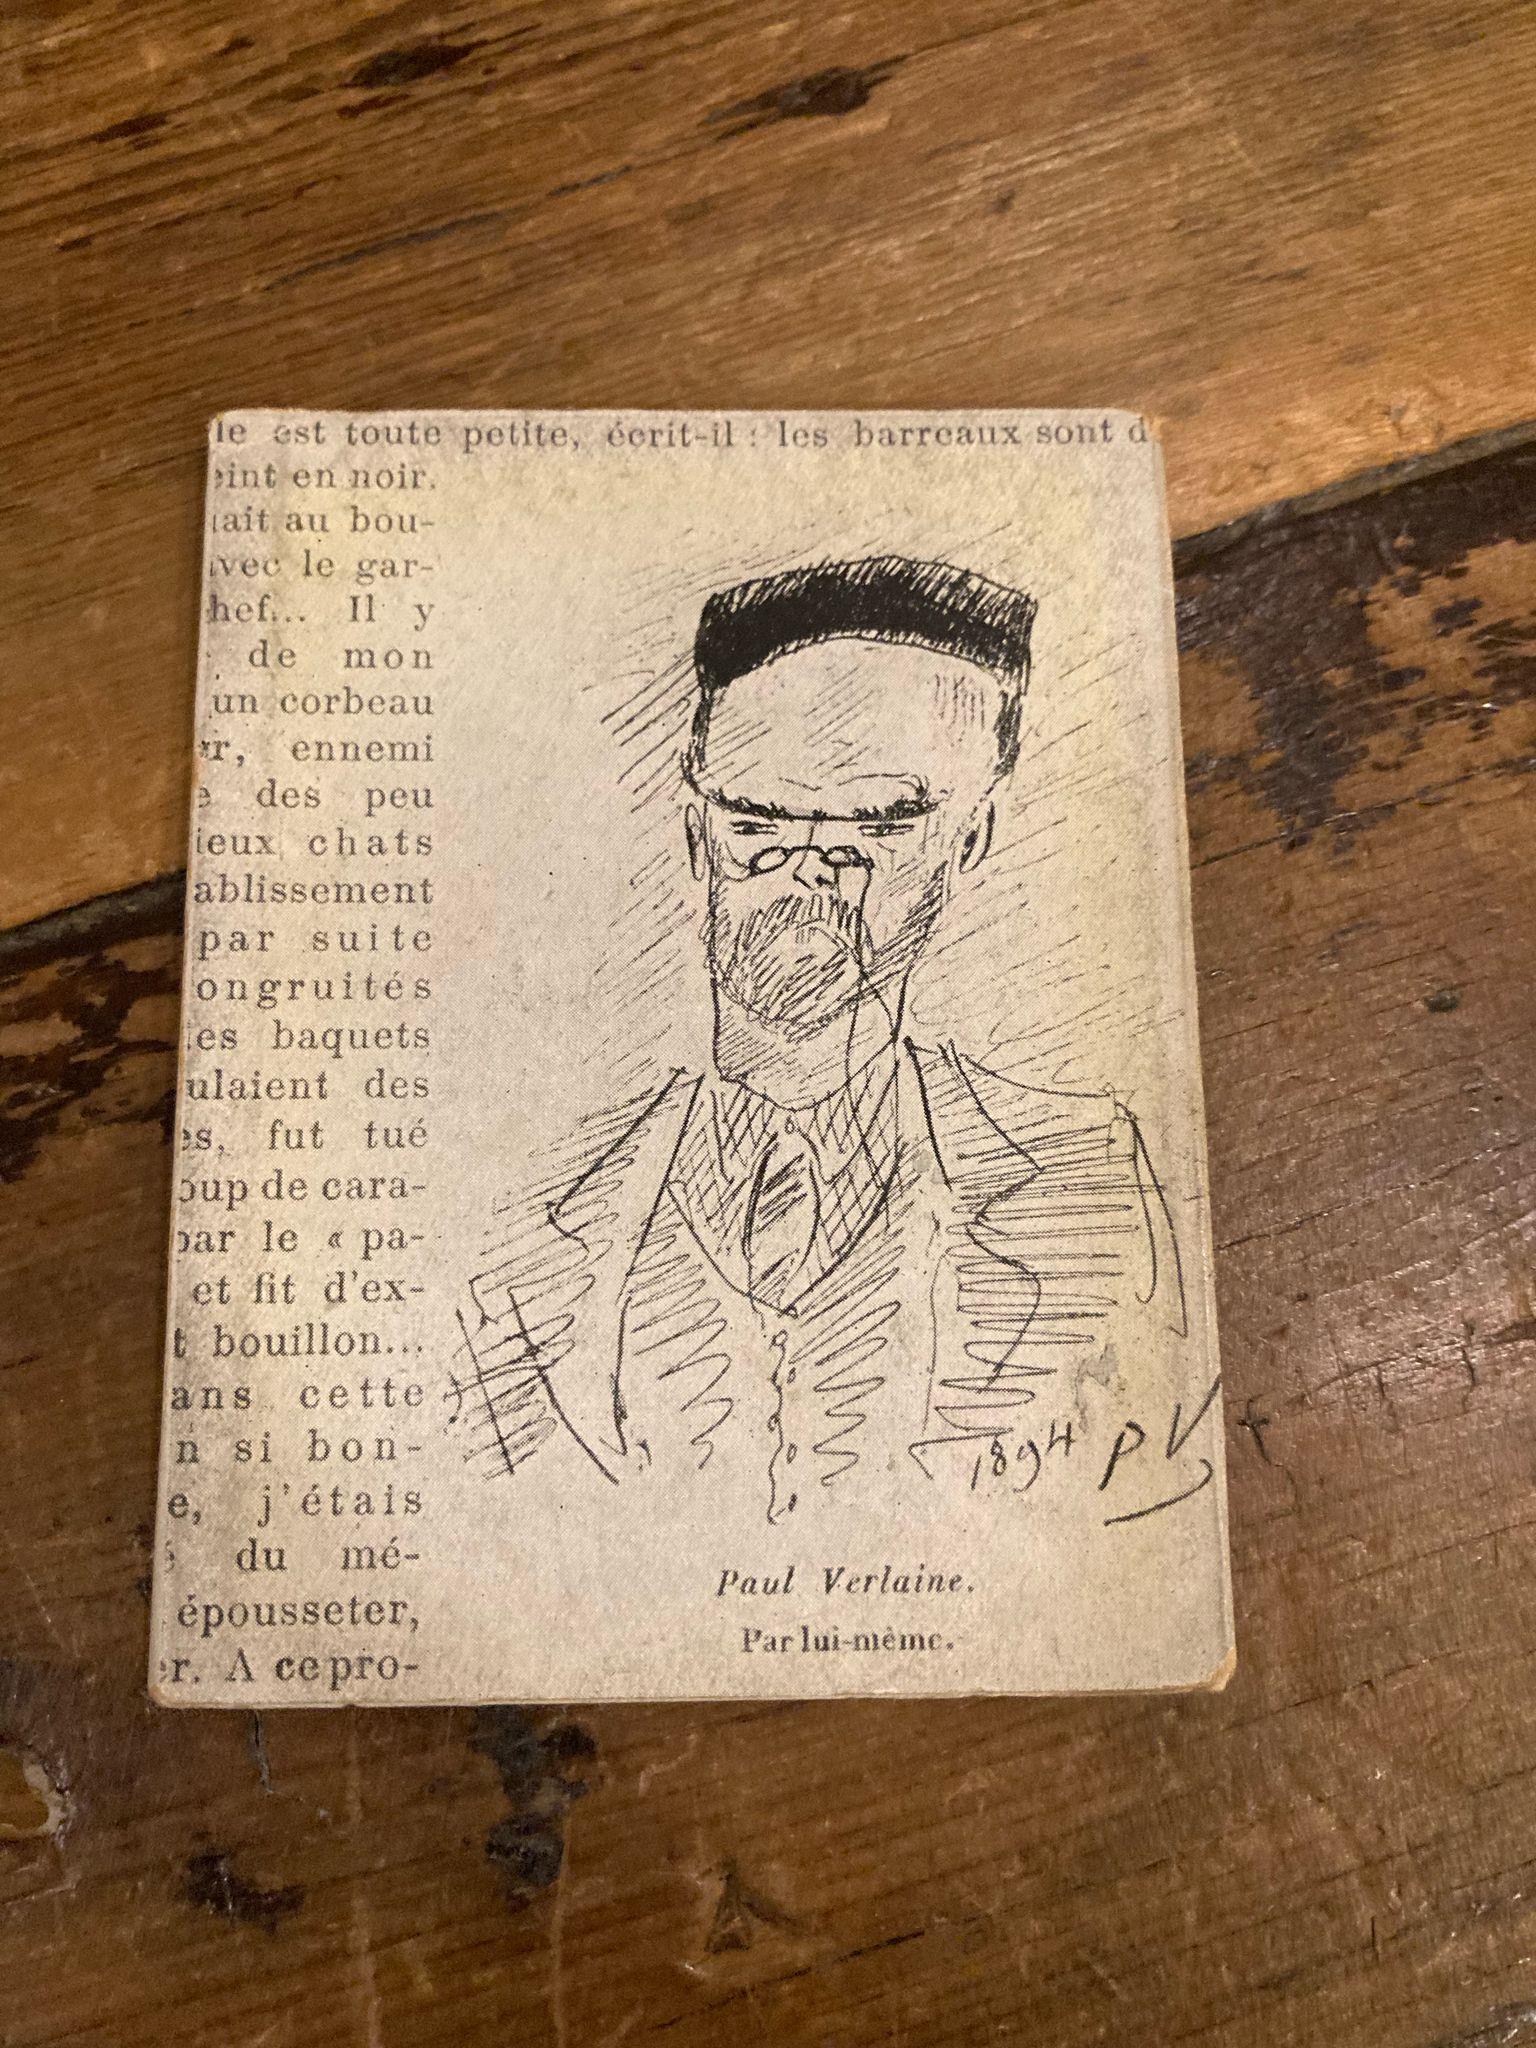 le est toute petite, écrit-il : les barreaux sont d
eint en noir.
ait au bou-
vec le gar-
hef... Il y
de mon
un corbeau
r, ennemi
e des peu
ieux chats
ablissement
par suite
ongruités
es baquets
ulaient des
es, fut tué
oup de cara-
par le « pa-
et fit d'ex-
t bouillon...
ans cette
n si bon-
e, j'étais
du mé-
épousseter,
r. A ce pro-
1894 PV
Paul Verlaine.
Par lui-même.